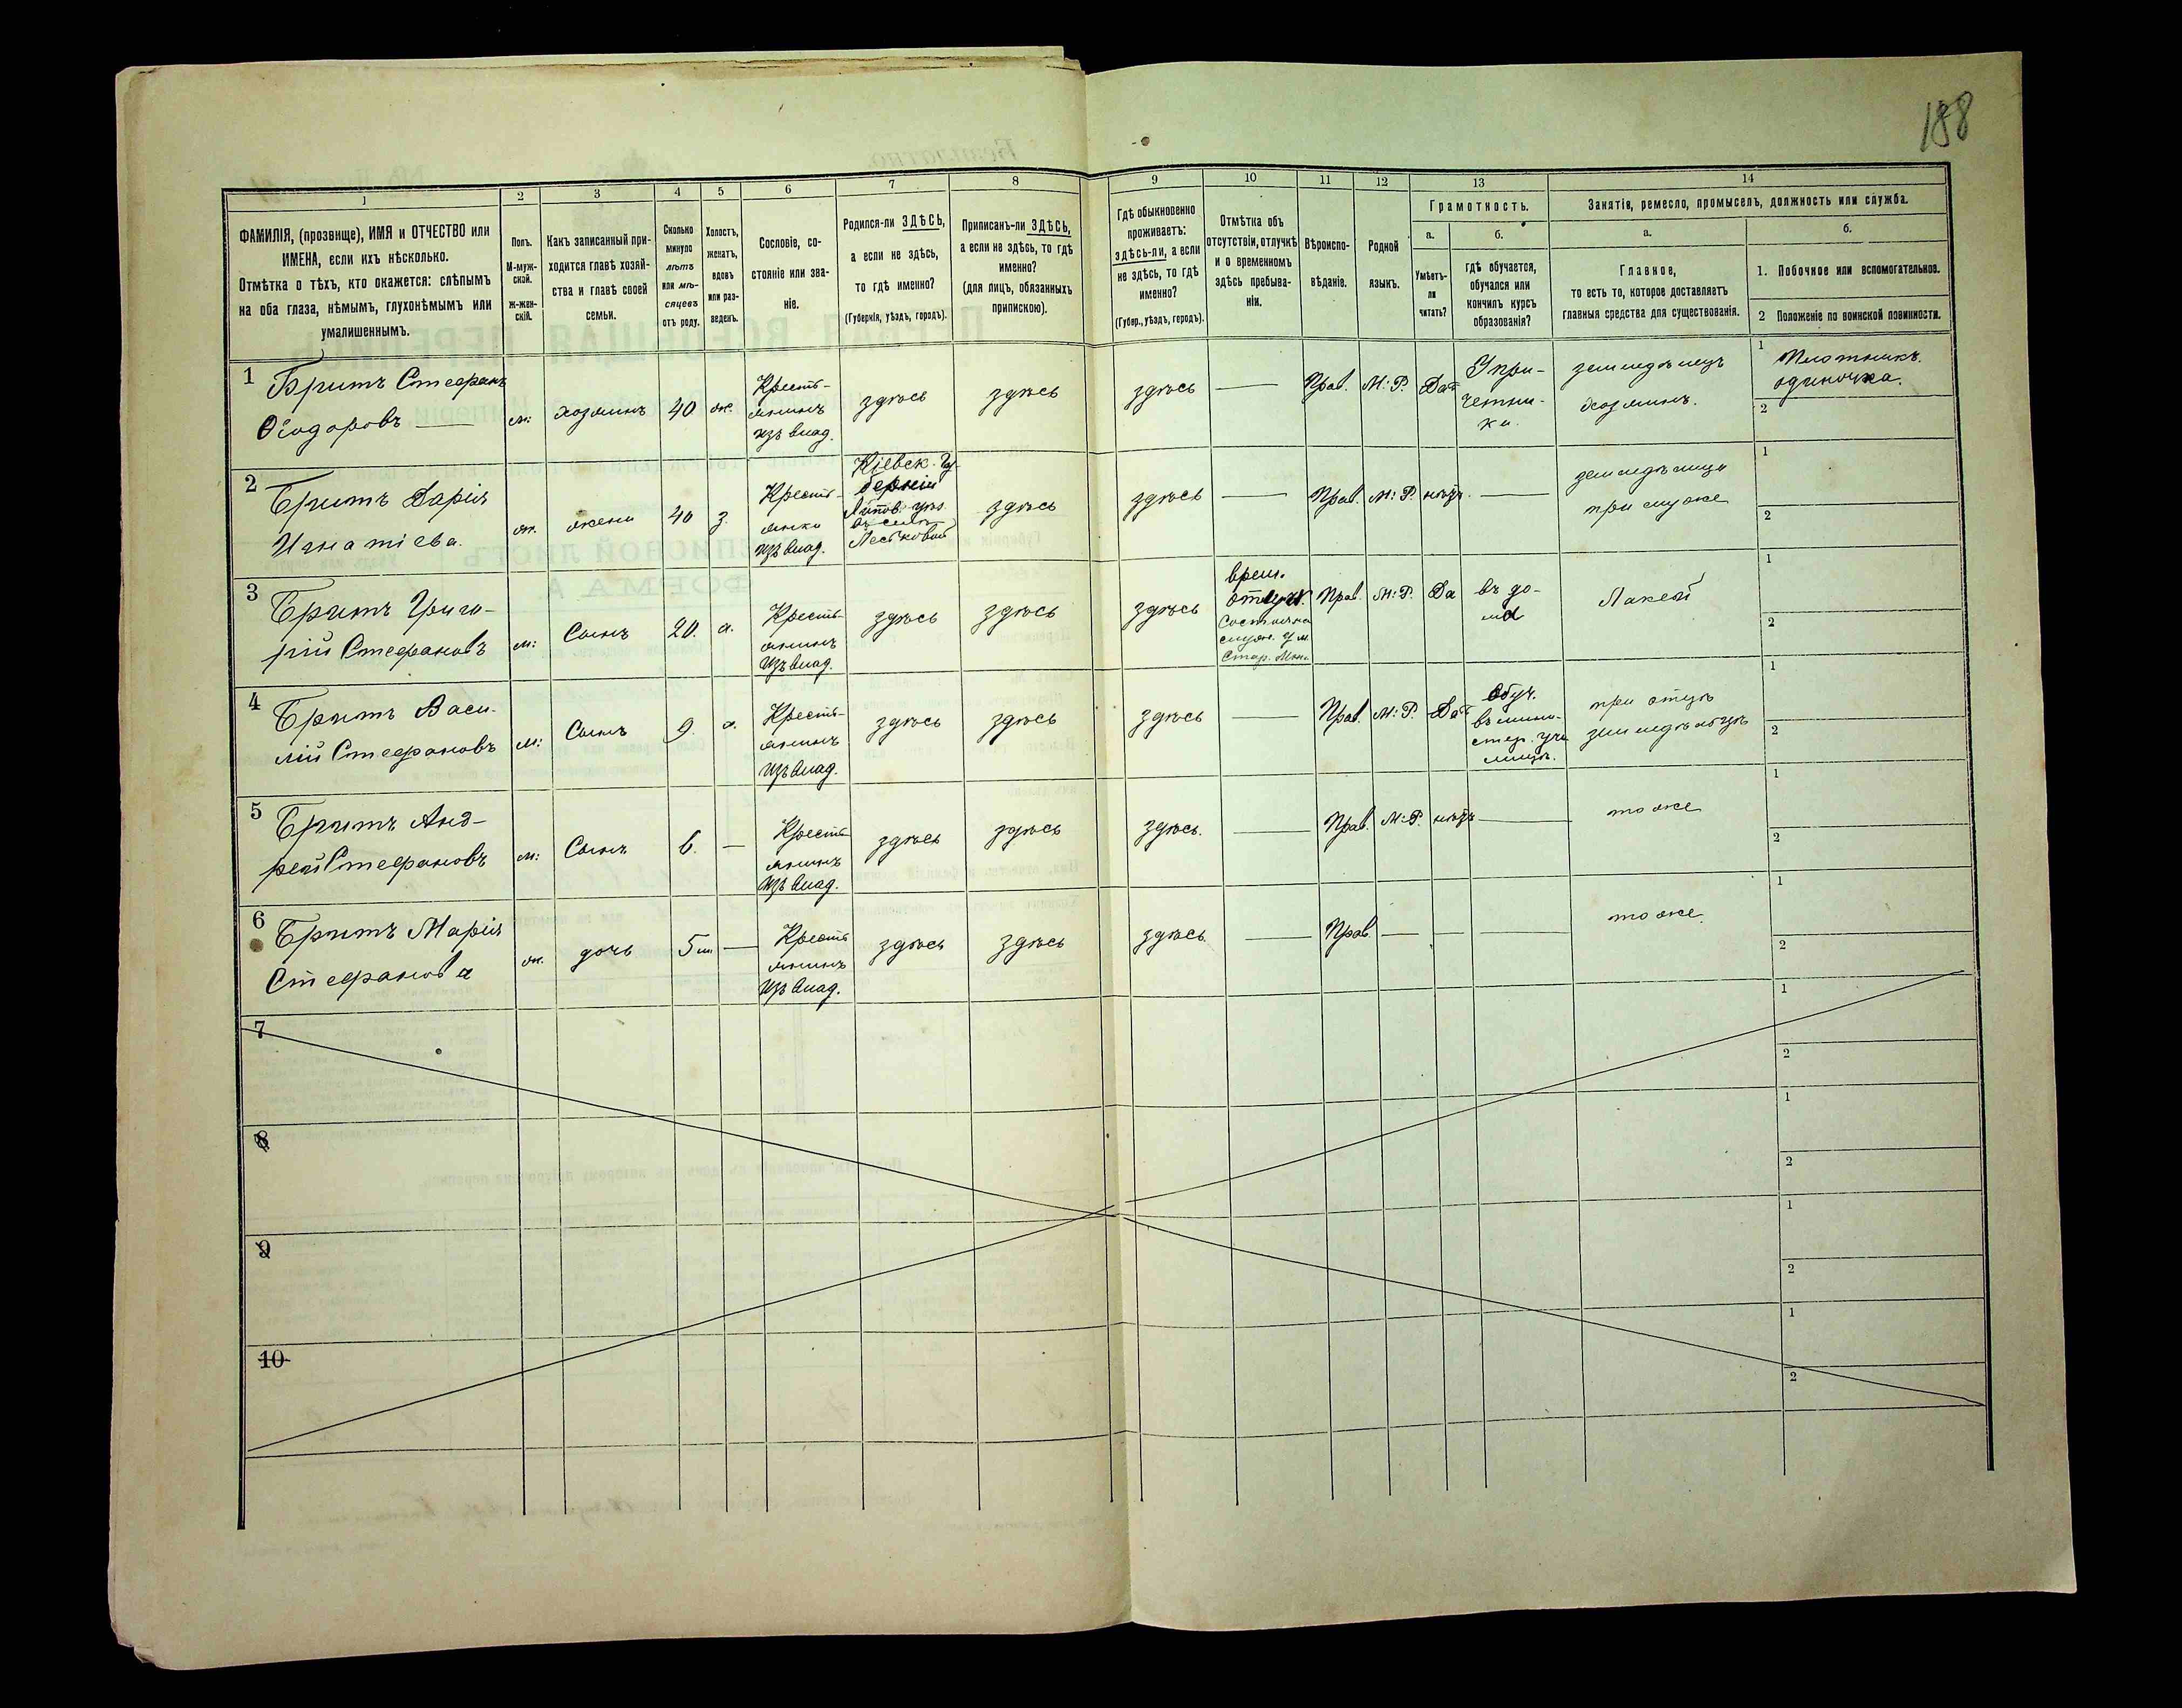 188
1
2
3
4
5
6
7
8
9
10
11
12
13
14
ФАМИЛІЯ, (прозвище), ИМЯ и ОТЧЕСТВО или
ИМЕНА, если ихъ нѣсколько.
Отмѣтка о тѣхъ, кто окажется: слѣпымъ
на оба глаза, нѣмымъ, глухонѣмымъ или
умалишеннымъ.
Полъ.
М-муж-
ской.
Ж-жен-
скій.
Какъ записанный при-
ходится главѣ хозяй-
ства и главѣ своей
семьи.
Сколько
минуло
лѣтъ
или мѣ-
сяцевъ
отъ роду.
Холостъ,
женатъ,
вдовъ
или раз-
веденъ.
Сословіе, со-
стояніе или зва-
ніе.
Родился-ли ЗДѢСЬ,
а если не здѣсь,
то гдѣ именно?
(Губернія, уѣздъ, городъ).
Приписанъ-ли ЗДѢСЬ,
а если не здѣсь, то гдѣ
именно?
(для лицъ, обязанныхъ
припискою).
Гдѣ обыкновенно
проживаетъ:
здѣсь-ли, а если
не здѣсь, то гдѣ
именно?
(Губер., уѣздъ, городъ).
Отмѣтка объ
отсутствіи, отлучкѣ
и о временномъ
здѣсь пребыва-
ніи.
Вѣроиспо-
вѣданіе.
Родной
языкъ.
Грамотность.
а.
Умѣетъ-
ли
читать?
б.
гдѣ обучается,
обучался или
кончилъ курсъ
образованія?
Занятія, ремесло, промыселъ, должность или служба.
а.
Главное,
то есть то, которое доставляетъ
главныя средства для существованія.
б.
1. Побочное или вспомогательное.
2 Положеніе по воинской повинности.
1
Бритъ Стефанъ
Ѳіодоровъ —
м:
хозяинъ
40
ж.
Кресть-
янинъ
изъ влад.
здѣсь
здѣсь
здѣсь
—
Прав.
М: Р.
Да
У при-
четни-
ка.
земледѣлецъ
хозяинъ.
1 Плотникъ.
одиночка.
2
2
Бритъ Дарія
Игнатіева.
ж.
жена
40
з.
Кресть-
янка
изъ влад.
Кіевск. Гу-
берніи
Липов. уѣз.
въ селѣ
здѣсь
здѣсь
—
Прав.
М: Р.
нѣтъ.
—
земледѣлица
при муже
1
2
3
Бритъ Григо-
рій Стефановъ
м:
Сынъ
20.
х.
Кресть-
янинъ
Изъ влад.
здѣсь
здѣсь
здѣсь
врем.
отлуч.
Прав.
М: Р.
Да
въ до-
ма
Лакей
1
2
4
Бритъ Васи-
лій Стефановъ
м:
Сынъ
9.
х.
Кресть-
янинъ
Изъ влад.
здѣсь
здѣсь
здѣсь
—
Прав.
М: Р.
Да
Обуч.
въ мини-
стер. учи
лищѣ.
при отцѣ
земледѣльцѣ
1
2
5
Бритъ Анд-
рей Стефановъ
м:
Сынъ
6.
—
Кресть
янинъ
Изъ влад.
здѣсь
здѣсь
здѣсь.
—
Прав.
М: Р.
нѣтъ
—
то же
1
2
6
Бритъ Марія
Стефанова
ж.
дочь
5 м
—
Кресть
янинъ
Изъ влад.
здѣсь
здѣсь
здѣсь.
—
Прав.
—
—
—
то же.
1
2
7
1
2
8
1
2
9
1
2
10
1
2